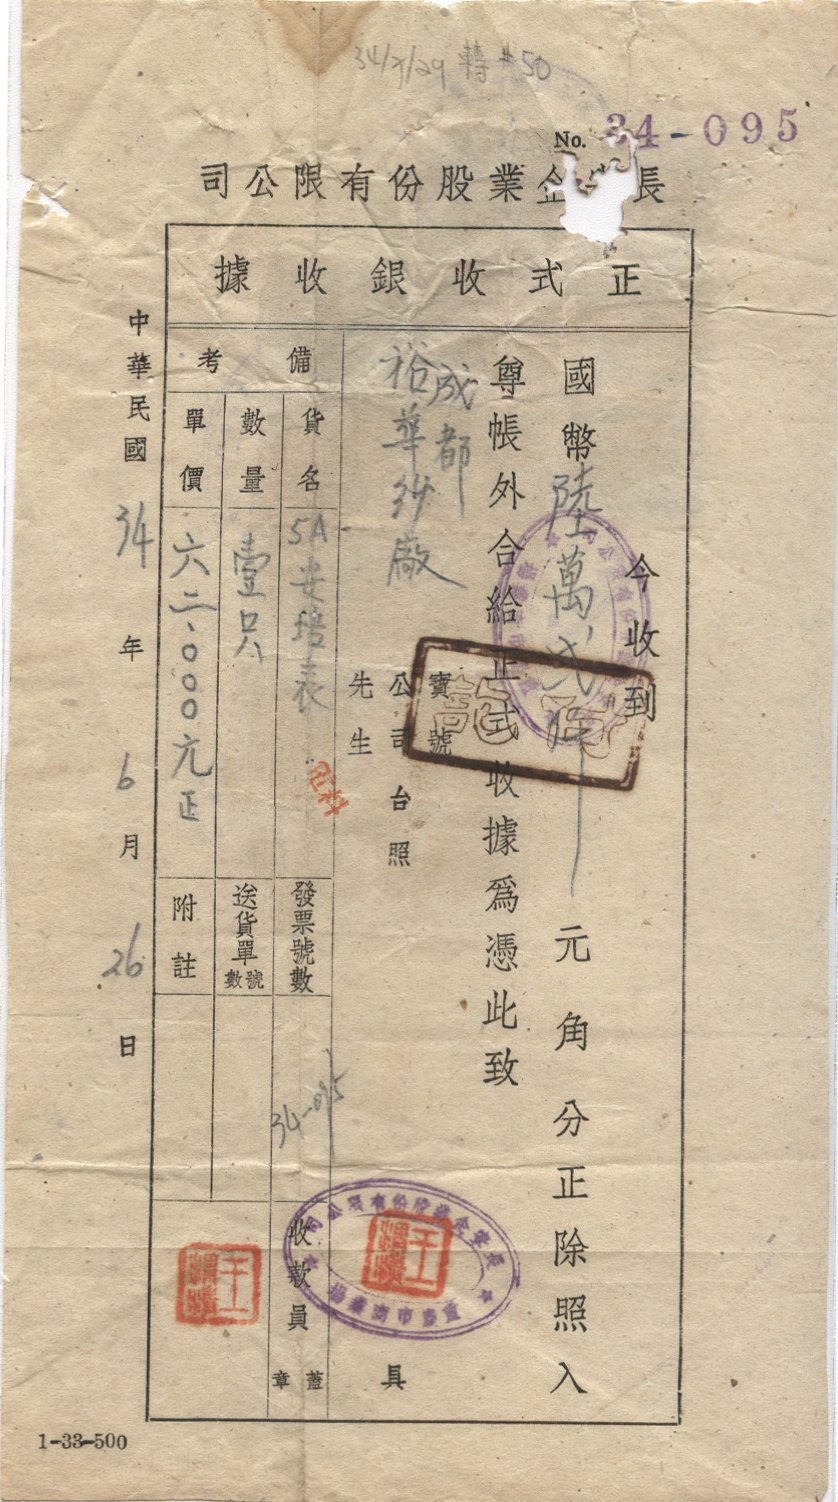 34/7/29 轉 #50
No. 34-095
長安企業股份有限公司
正式收銀收據
今收到
國幣陸萬弍仟元角分正除照入
尊帳外合給正式收據爲憑此致
成都
裕華紗廠
寶號
公司台照
先生
具
備考
貨名
5A安培表
數量
壹只
單價
六二、000元正
發票號數
34-095
送貨單號數
附註
收款員
蓋章
中華民國34年6月26日
長安企業股份有限公司
1-33-500